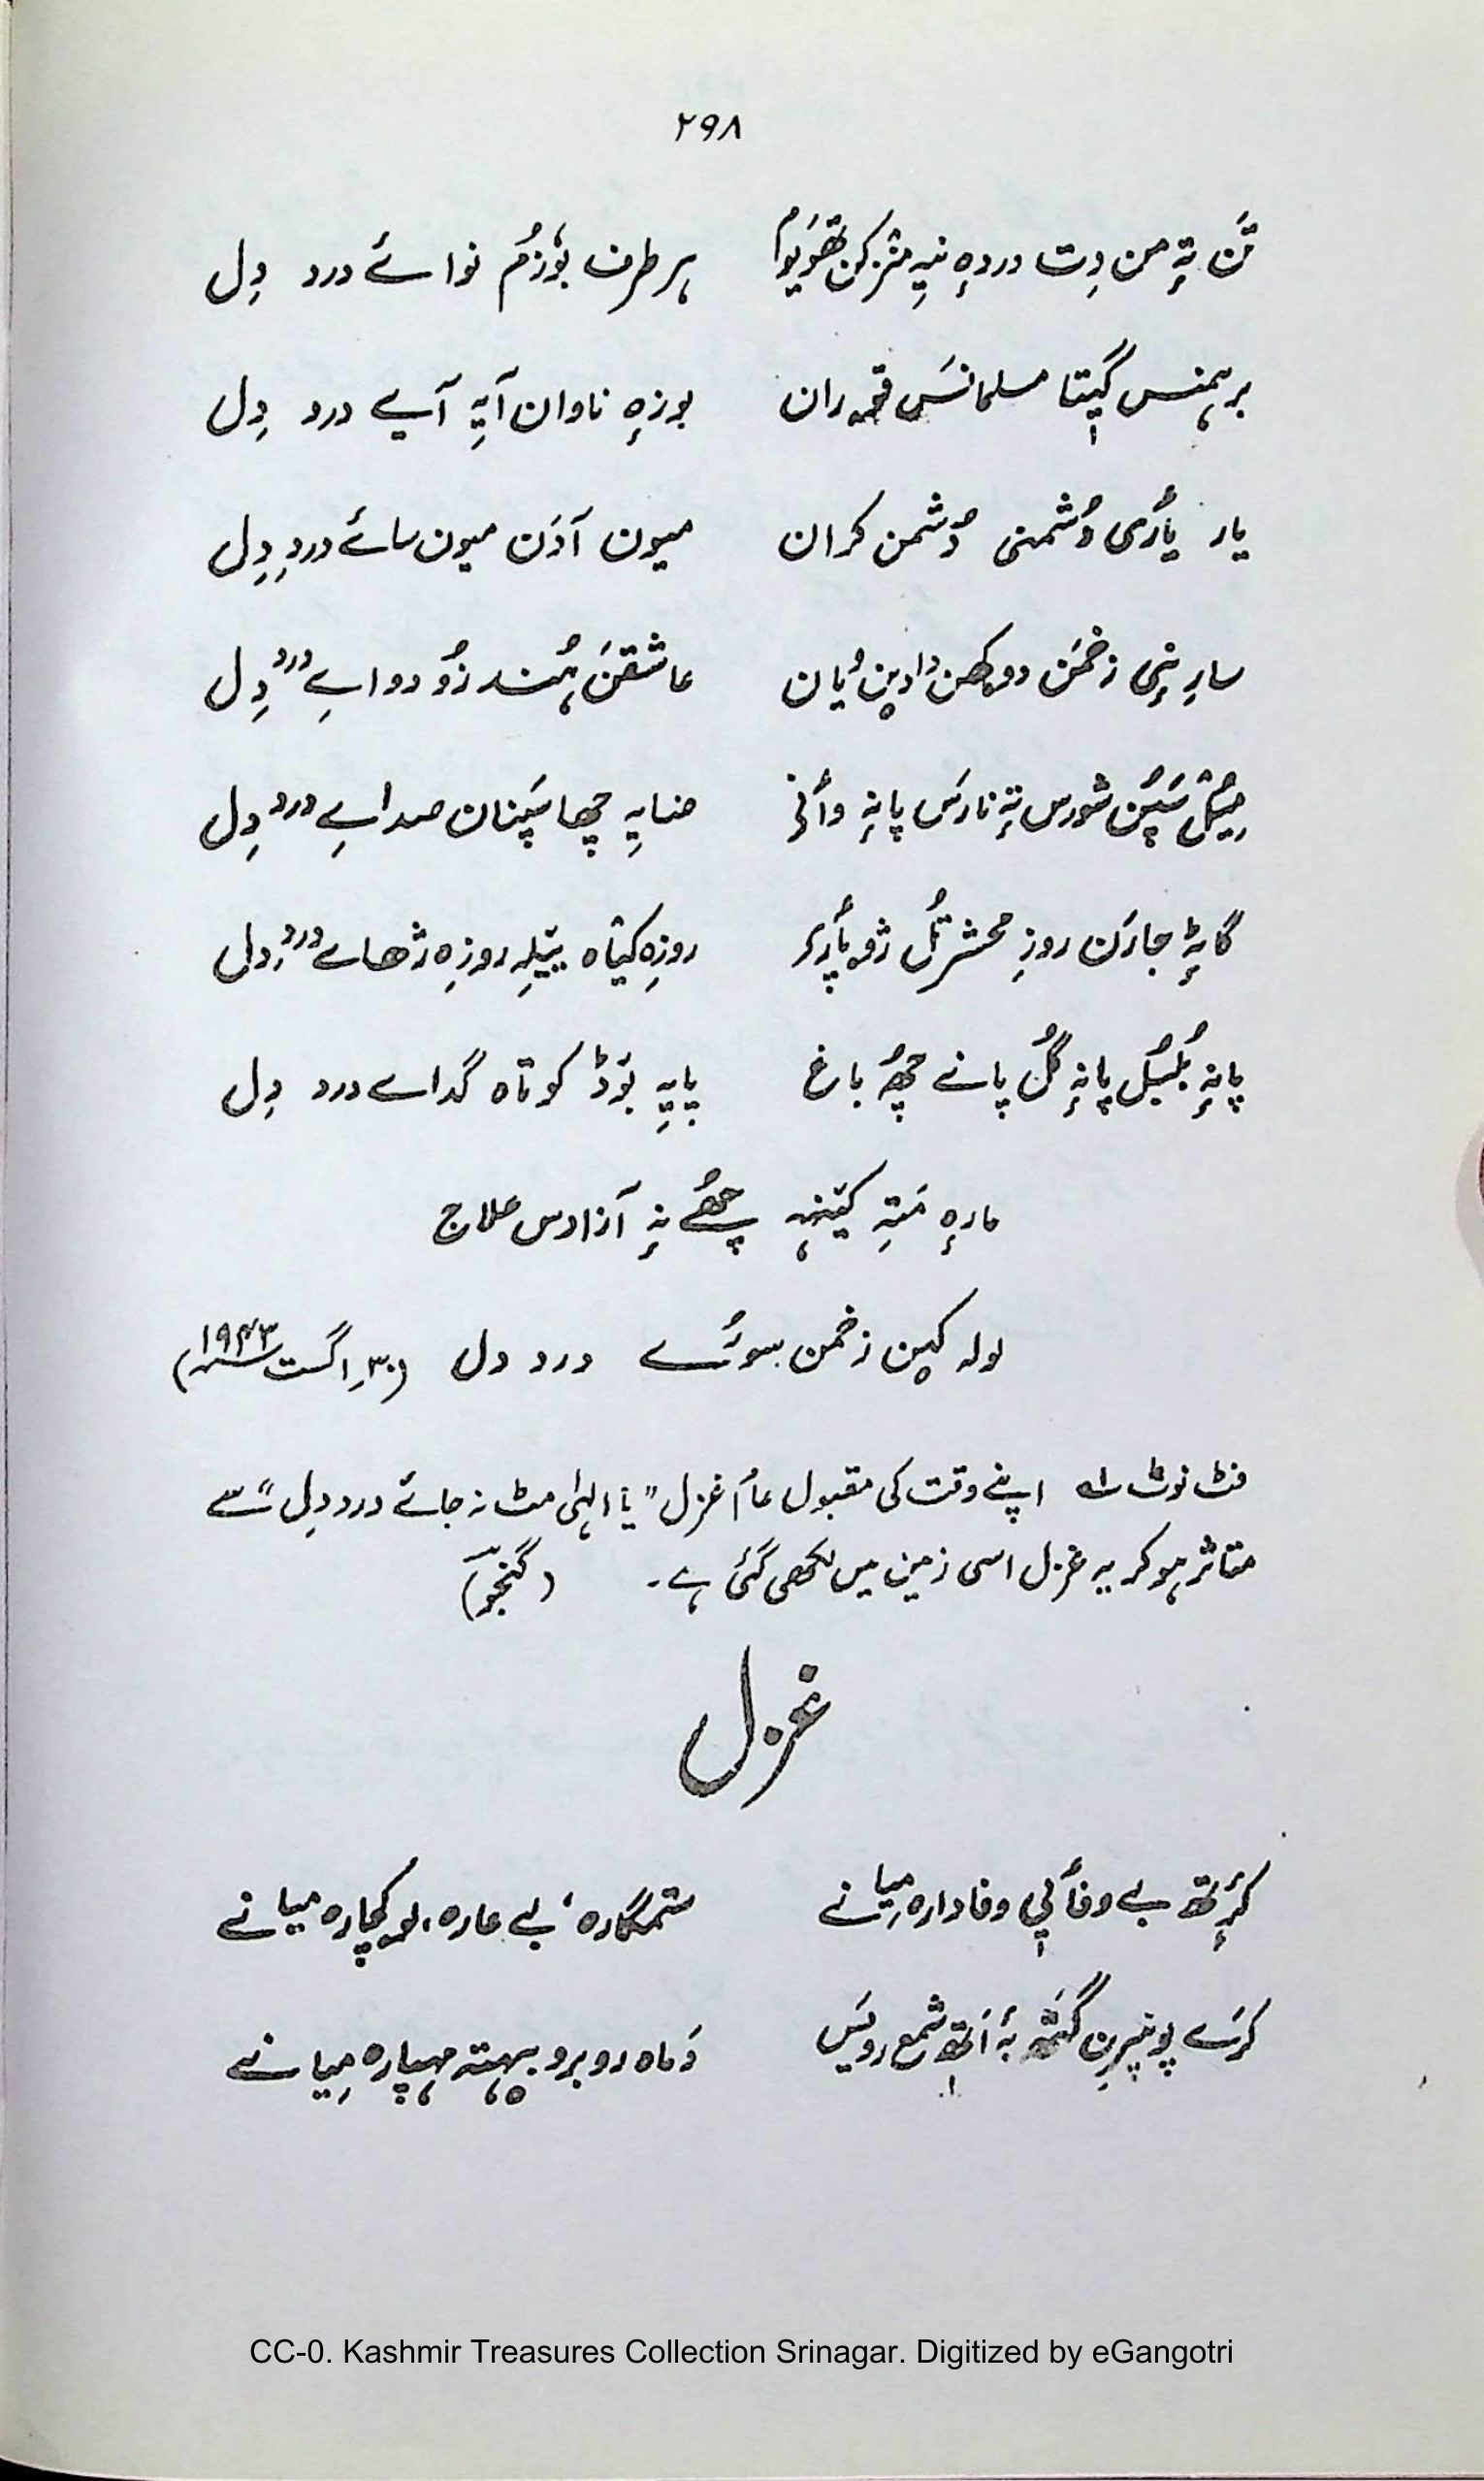 ٢٩٨
تَن تہٕ من دِت دردہٕ نیہِ منٛز کن تھَویوم ہر طرف بوٗزُم نوائے درد دِل
برہمنس گیٖتا مسلمانَس قۄران بوزہٕ ناوان آیہِ آیے درد دِل
یار یأری دُشمنی دُشمن کران میون آدَن میون سائے دردِ دِل
سارِنٕی زخمَن دوکھن دادین وُپان عاشقَن ہُند زُو دواے دردِ دِل
مُشکِل سَپُن شورس تہٕ نارَس پانہٕ وأنی ضایہِ چھا سَپنان صداے درد دِل
گاہٹہٕ جارَن روزِ محشر تُل ژۄپأرۍ روزِہ کیٛاہ ییٚلہِ روزِہ ژھاے دردِ دِل
پانہٕ بُلبُل پانہٕ گُل پانے چھُ باغ پایہِ بوٚڈ کوتاہ گداے درد دِل
مارہٕ مَتہِ کیٚنہہ چھُے نہٕ آزادس علاج
لولہ کیٚن زخمن سوُے درد دل (٣٠؍اگست ١٩٤٣؁)
فٹ نوٹ ۱؎ اپنے وقت کی مقبول عام غزل "یا الہٰی مٹ نہ جائے دردِ دِل" سے
متاثر ہوکر یہ غزل اسی زمین میں لکھی گئی ہے۔ (گنجوؔ)
غزل
کٔرِتھ بے وفأیی وفادارہ مِیانے ستمگارہ، بے عارہ، لوکچارہ میانے
کرَے پونپرِن گَتھ بہٕ اَتھ شمع رویَس دَماہ روبرو بہتہ مہپارہ مِیانے
CC-0. Kashmir Treasures Collection Srinagar. Digitized by eGangotri